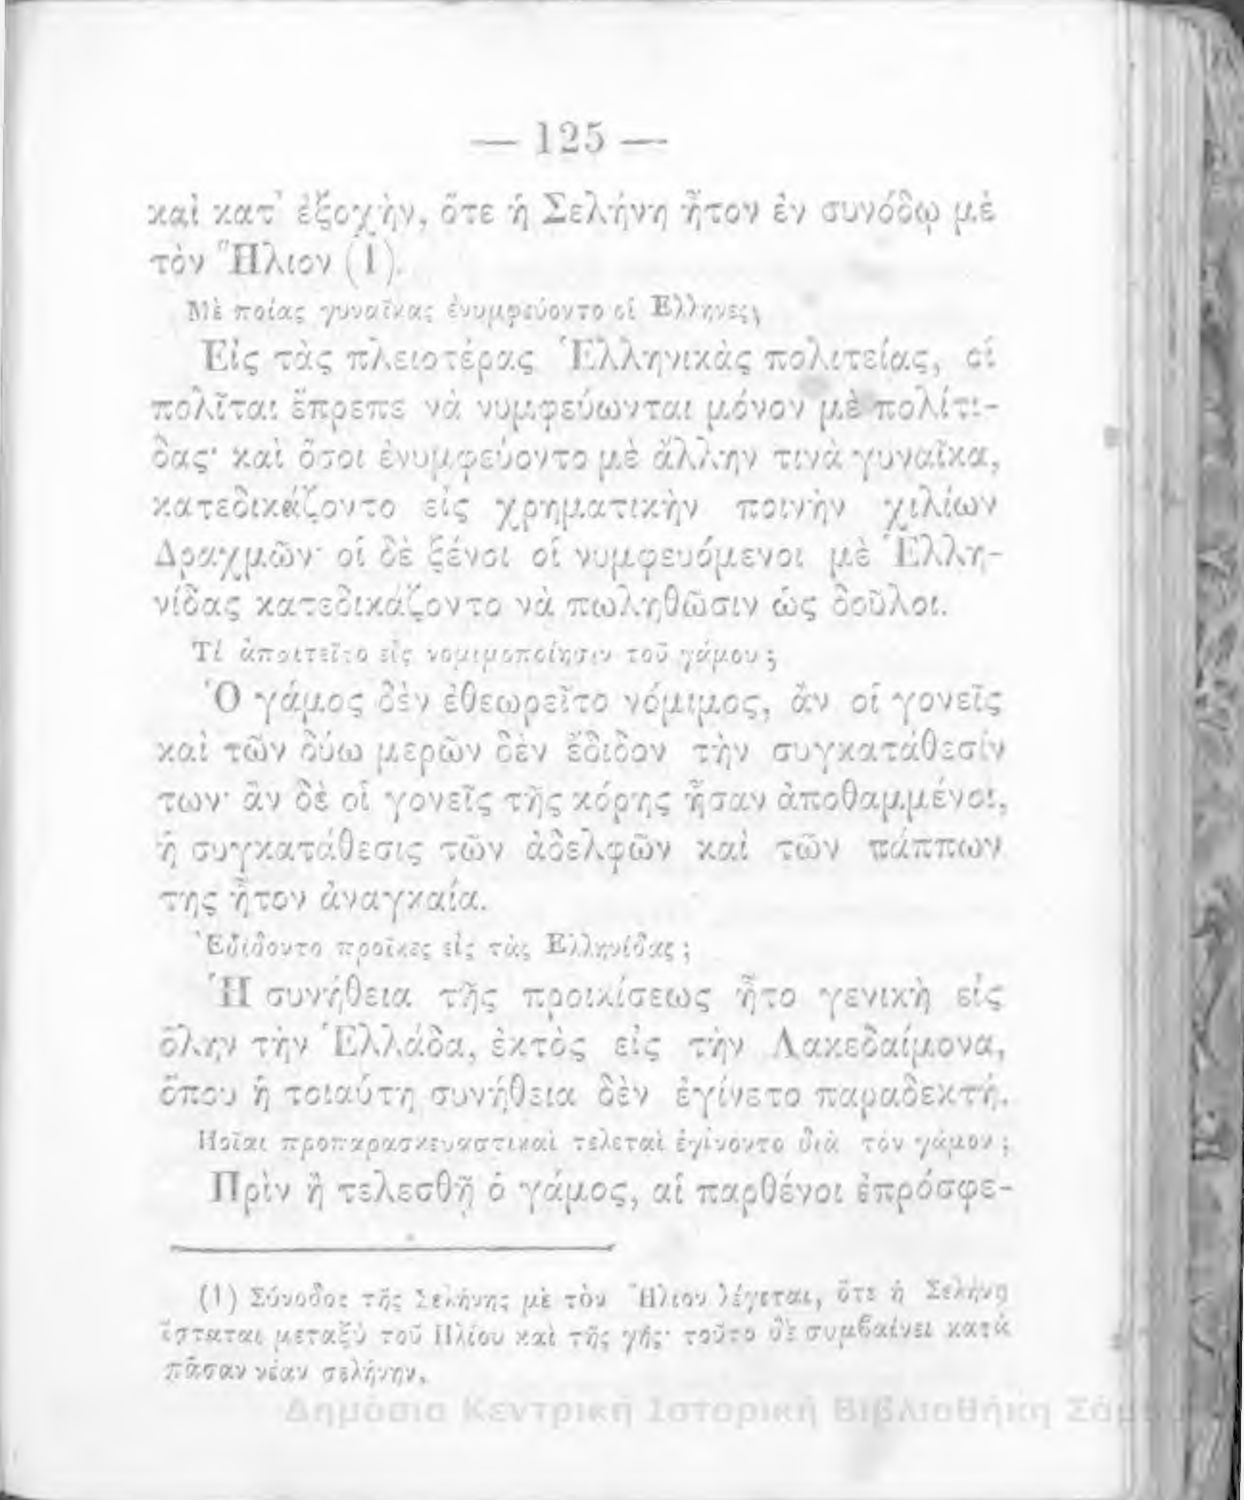 — 125 —
καὶ κατ' ἐξοχὴν, ὅτε ἡ Σελήνη ἦτον ἐν συνόδῳ μὲ
τὸν Ἥλιον (1).
Μὲ ποίας γυναῖκας ἐνυμφεύοντο οἱ Ἕλληνες;
Εἰς τὰς πλειοτέρας Ἑλληνικὰς πολιτείας, οἱ
πολῖται ἔπρεπε νὰ νυμφεύωνται μόνον μὲ πολίτι-
δας· καὶ ὅσοι ἐνυμφεύοντο μὲ ἄλλην τινὰ γυναῖκα,
κατεδικάζοντο εἰς χρηματικὴν ποινὴν χιλίων
Δραχμῶν· οἱ δὲ ξένοι οἱ νυμφευόμενοι μὲ Ἑλλη-
νίδας κατεδικάζοντο νὰ πωληθῶσιν ὡς δοῦλοι.
Τί ἀπῃτεῖτο εἰς νομιμοποίησιν τοῦ γάμου;
Ὁ γάμος δὲν ἐθεωρεῖτο νόμιμος, ἂν οἱ γονεῖς
καὶ τῶν δύω μερῶν δὲν ἔδιδον τὴν συγκατάθεσίν
των· ἂν δὲ οἱ γονεῖς τῆς κόρης ἦσαν ἀποθαμμένοι,
ἡ συγκατάθεσις τῶν ἀδελφῶν καὶ τῶν πάππων
της ἦτον ἀναγκαία.
Ἐδίδοντο προῖκες εἰς τὰς Ἑλληνίδας;
Ἡ συνήθεια τῆς προικίσεως ἦτο γενικὴ εἰς
ὅλην τὴν Ἑλλάδα, ἐκτὸς εἰς τὴν Λακεδαίμονα,
ὅπου ἡ τοιαύτη συνήθεια δὲν ἐγίνετο παραδεκτή.
Ποῖαι προπαρασκευαστικαὶ τελεταὶ ἐγίνοντο διὰ τὸν γάμον;
Πρὶν ἢ τελεσθῇ ὁ γάμος, αἱ παρθένοι ἐπρόσφε-
(1) Σύνοδος τῆς Σελήνης μὲ τὸν Ἥλιον λέγεται, ὅτε ἡ Σελήνη
ἵσταται μεταξὺ τοῦ Ἡλίου καὶ τῆς γῆς· τοῦτο δὲ συμβαίνει κατὰ
πᾶσαν νέαν σελήνην.
Δημόσια Κεντρική Ιστορική Βιβλιοθήκη